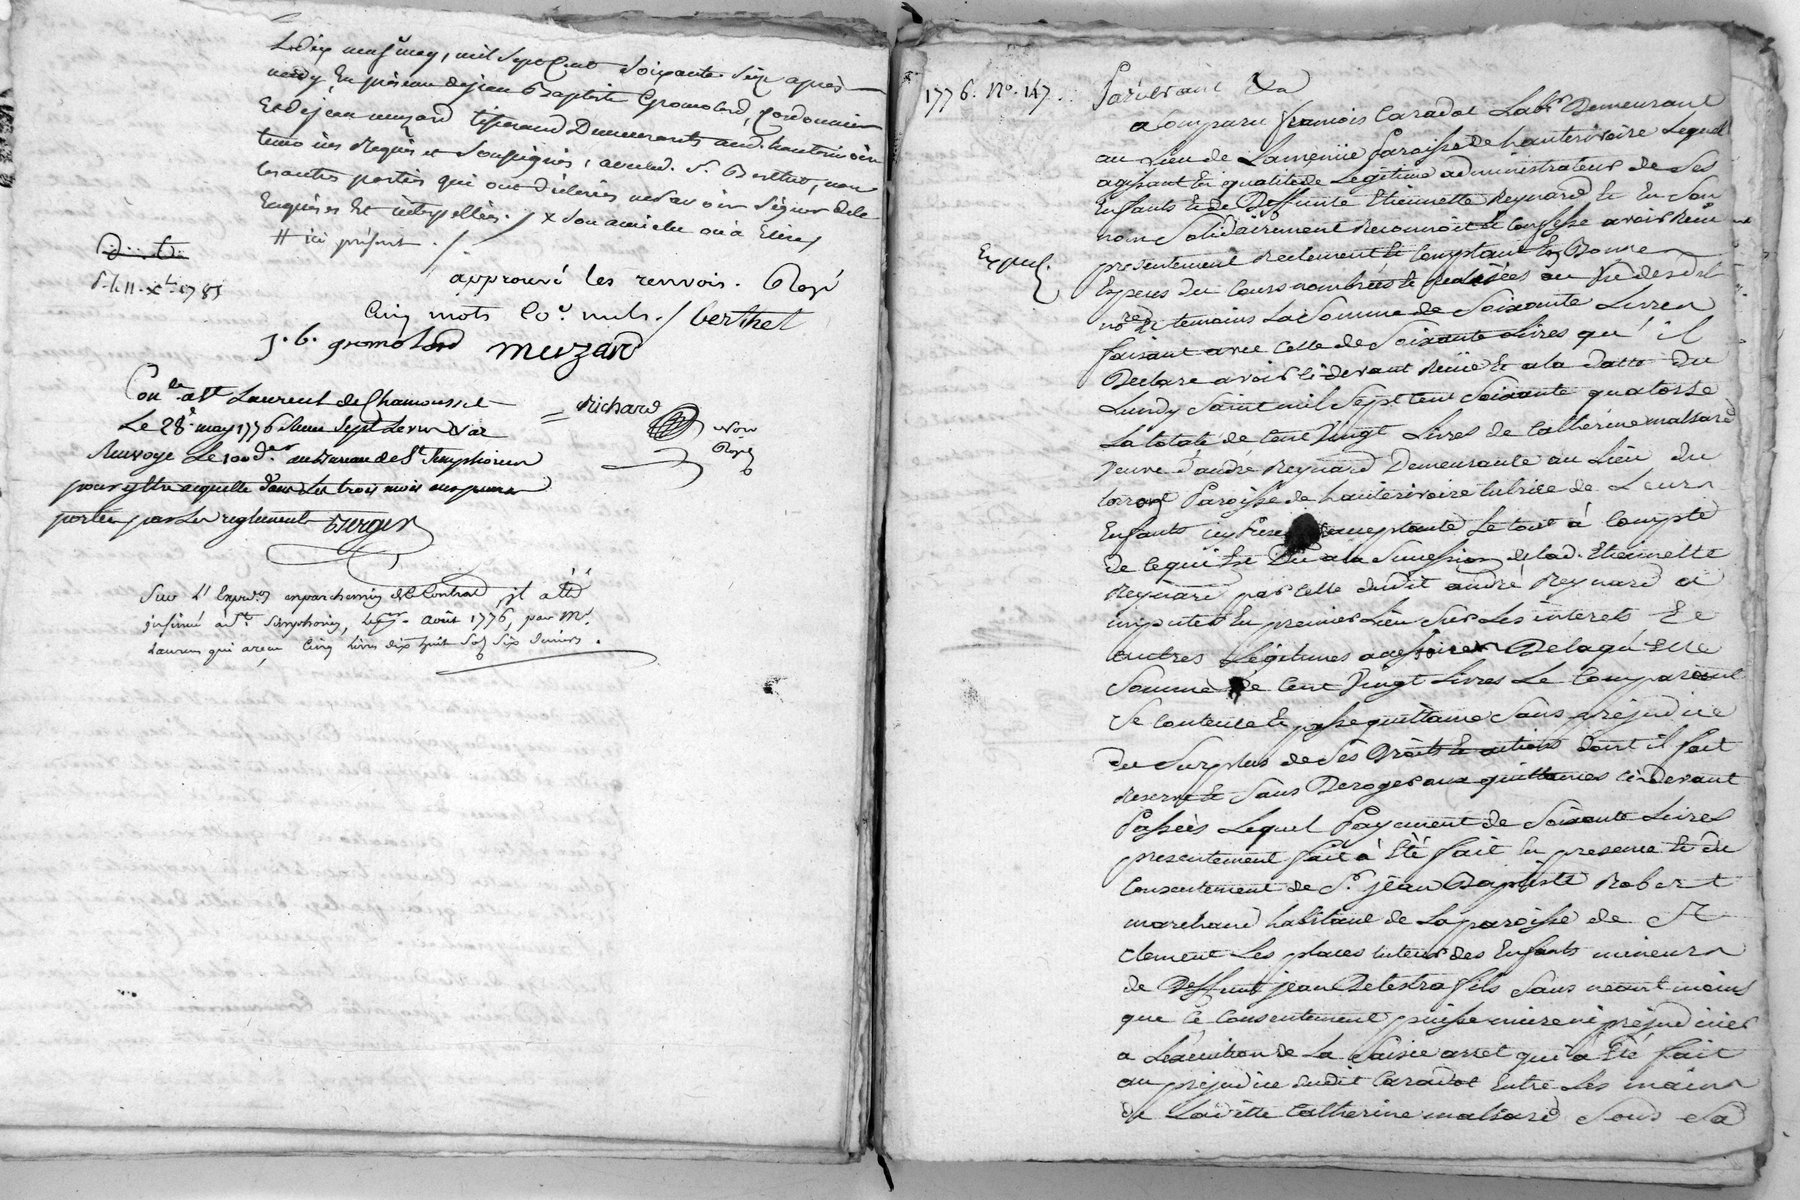 Le dix neuf may, mil sept Cent soixante seize après
midy, En présence de jean Baptiste Gromolard, Cordonnier
Et de jean muzard tisserand Demeurants aud. hauterivoire
temoins Requis et Soussignés, avec led. S. Berthet, non
les autres parties qui ont déclarés ne savoir signer de ce
Enquises Et interpellées. /
# ici présent . /
approuvé les renvois. Rayé
Cinq mots nuls. / berthet
j. b. gromolard muzard
S. le 11. Xbre 1785
Con.le a St Laurent de Chamousset
Le 28e may 1776
Renvoyé Le 100 d.er au Bureau de St Simphorien
pour y etre acquitté dans les trois mois
portées par les reglements berger
Richard
Non
Rayé
Sur L'Expéd.on en parchemin de Ce Contrat, il a été
insinué a St. Simphorien, Le aout 1776, par Mr.
Laurent qui a reçu Cinq Livres dix huit Sols Six deniers.
1776. No. 147.
Pardevant &a
a Comparu françois Caradot Lab.r Demeurant
au Lieu de Lamenüe Paroisse de hauterivoire Lequel
agissant En qualité de Legitime administrateur de Ses
Enfants & de Deffunte Etiennette Reynard Et En Son
nom Solidairement Reconnoit & Confesse avoir Reçu
presentement Reelement & Comptant En Bonne
Expéd.
Especes du Cours nombrées & Realisées au Vu desd.
no.re & temoins La Somme de Soixante Livres
faisant avec Celle de Soixante Livres qu'il
Declare avoir Ci devant Reçüe & a la Datte du
Lundy Saint mil Sept Cent Soixante quatorse
La totale de Cent Vingt Livres de Catherine malsard
Veuve d'andré Reynard Demeurante au Lieu du
Paroisse de hauterivoire tutrice de Leurs
Enfants acceptante Le tout à Compte
de Ce qui Est Dû a la Succession de lad. Etiennette
Reynard par Celle dudit andré Reynard a
imputer En premier Lieu Sur Les interets & Ce
autres Legitimes accessoires De laquelle
Somme de Cent Vingt Livres Le Comparant
Se Contente & passe quittance Sans préjudice
du Surplus de Ses Droits & actions dont il fait
Reserve & Sans Deroger aux quittances ci devant
Passées Lequel Payement de Soixante Livres
presentement fait à Eté fait En presence & du
Consentement de Sr. jean Baptiste Robert
marchand habitant de La paroisse de St
Clement Les places tuteur des Enfants mineurs
de Deffunt jean Delestra fils Sans neant moins
que Ce Consentement puisse nuire ni préjudicier
a L'execution de La Saisie arret qui a Eté fait
au préjudice dudit Caradot Entre Les mains
de Laditte Catherine malsard Sous Sa